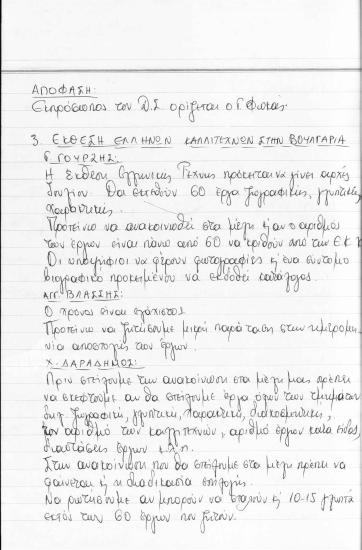 ΑΠΟΦΑΣΗ:
Εκπρόσωπος του Δ.Σ ορίζεται ο Γ. Φωκάς.
3. ΕΚΘΕΣΗ ΕΛΛΗΝΩΝ ΚΑΛΛΙΤΕΧΝΩΝ ΣΤΗΝ ΒΟΥΛΓΑΡΙΑ
Γ. ΓΟΥΡΖΗΣ:
Η Εκθεση Ελληνικης Τέχνης πρόκειται να γίνει αρχές
Ιουλίου. Θα εκτεθούν 60 έργα ζωγραφικής, γλυπτικής,
χαρακτικής.
Προτείνω να ανακοινωθεί στα μέλη κι αν ο αριθμος
των έργων είναι πάνω από 60 να κριθούν από την Ε.Κ.
Οι υποψήφιοι να φέρουν φωτογραφίες κι ένα σύντομο
βιογραφικό προκειμένου να εκδοθεί κατάλογος
ΑΓΓ. ΒΛΑΣΣΗΣ:
Ο χρόνος είναι ελάχιστος.
Προτείνω να ζητήσουμε μικρή παράταση στην ημερομη-
νία αποστολής των έργων.
Χ. ΔΑΡΑΔΗΜΟΣ:
Πριν στείλουμε την ανακοίνωση στα μέλη μας πρέπει
να σκεφτούμε αν θα στείλουμε έργα όλων των τμημάτων
δηλ. ζωγραφική, γλυπτική, χαρακτική, διακοσμητική,
τον αριθμό των καλλιτεχνών, αριθμό έργων κατά είδος,
διαστάσεις έργων κ.λ.π.
Στην ανακοίνωση που θα στείλουμε στα μέλη πρέπει να
φαίνεται κι η διαδικασία επιλογής.
Να ρωτήσουμε αν μπορούν να σταλούν κι 10-15 γλυπτά
εκτός των 60 έργων που ζητούν.